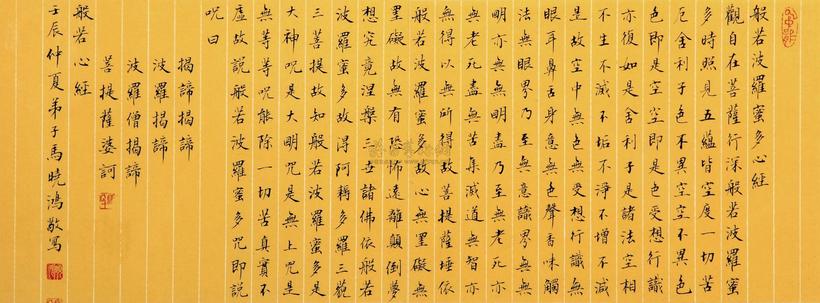 般若波羅蜜多心經
觀自在菩薩行深般若波羅蜜
多時照見五蘊皆空度一切苦
厄舍利子色不異空空不異色
色即是空空即是色受想行識
亦復如是舍利子是諸法空相
不生不滅不垢不淨不增不減
是故空中無色無受想行識無
眼耳鼻舌身意無色聲香味觸
法無眼界乃至無意識界無無
明亦無無明盡乃至無老死亦
無老死盡無苦集滅道無智亦
無得以無所得故菩提薩埵依
般若波羅蜜多故心無罣礙無
罣礙故無有恐怖遠離顛倒夢
想究竟涅槃三世諸佛依般若
波羅蜜多故得阿耨多羅三藐
三菩提故知般若波羅蜜多是
大神咒是大明咒是無上咒是
無等等咒能除一切苦真實不
虛故說般若波羅蜜多咒即說
咒曰
揭諦揭諦
波羅揭諦
波羅僧揭諦
菩提薩婆訶
般若心經
壬辰仲夏弟子馬曉鴻敬寫